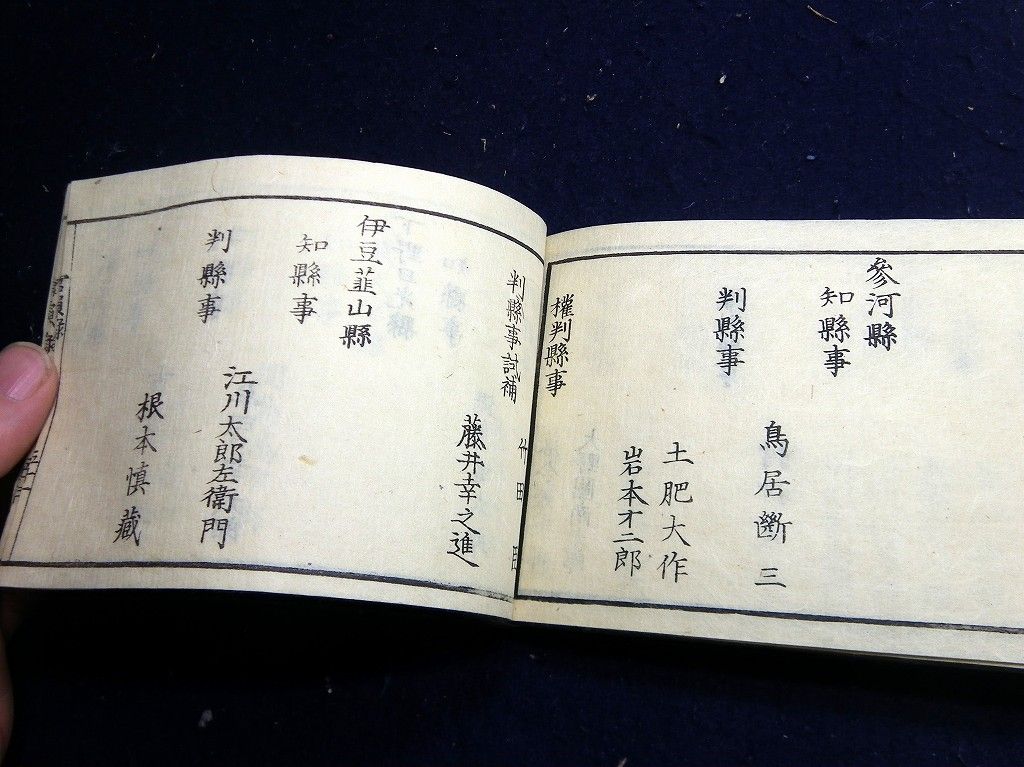 參河縣
知縣事
鳥居斷三
判縣事
土肥大作
岩本才二郎
權判縣事
竹田
判縣事試補
藤井幸之進
伊豆韮山縣
知縣事
江川太郎左衛門
判縣事
根本慎藏